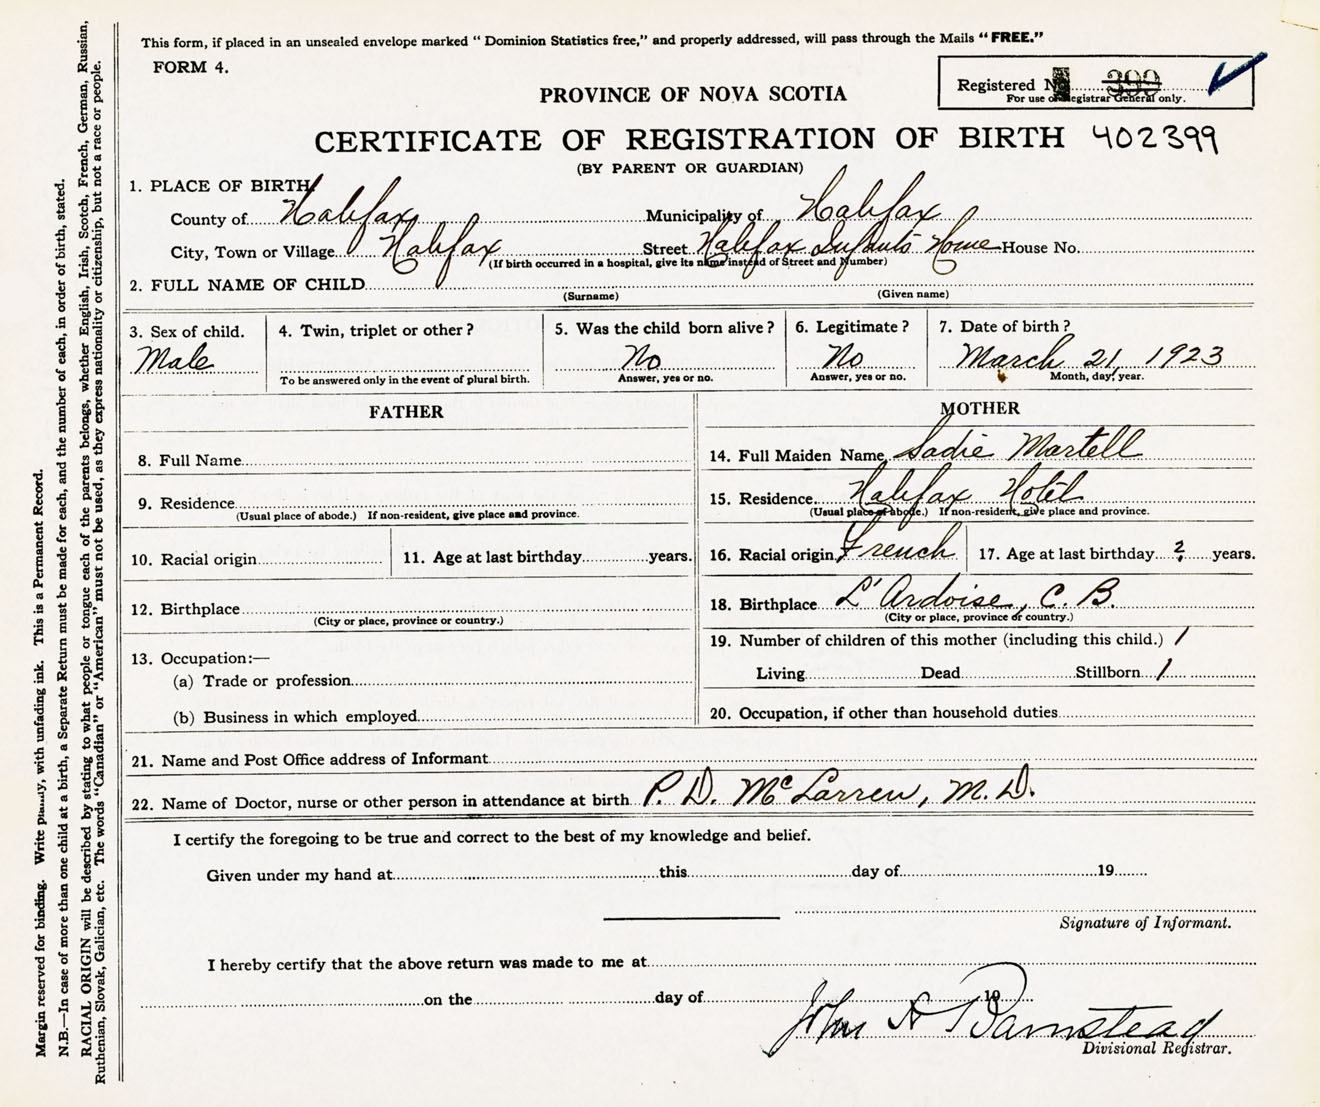 This form, if placed in an unsealed envelope marked “ Dominion Statistics free,” and properly addressed, will pass through the Mails “ FREE.”
FORM 4.
Registered 399
For use of Registrar General only.
PROVINCE OF NOVA SCOTIA
CERTIFICATE OF REGISTRATION OF BIRTH 402399
(BY PARENT OR GUARDIAN)
1. PLACE OF BIRTH
County of Halifax Municipality of Halifax
City, Town or Village Halifax Street Halifax Infants Home House No.
(If birth occurred in a hospital, give its name instead of Street and Number)
2. FULL NAME OF CHILD
(Surname) (Given name)
3. Sex of child. 4. Twin, triplet or other? 5. Was the child born alive? 6. Legitimate? 7. Date of birth?
Male No No March 21, 1923
To be answered only in the event of plural birth. Answer, yes or no. Answer, yes or no. Month, day, year.
FATHER
8. Full Name
9. Residence
(Usual place of abode.) If non-resident, give place and province.
10. Racial origin 11. Age at last birthday years.
12. Birthplace
(City or place, province or country.)
13. Occupation:—
(a) Trade or profession
(b) Business in which employed
MOTHER
14. Full Maiden Name Sadie Martell
15. Residence Halifax Hotel
(Usual place of abode.) If non-resident, give place and province.
16. Racial origin French 17. Age at last birthday ? years.
18. Birthplace L'Ardoise, C. B.
(City or place, province or country.)
19. Number of children of this mother (including this child.) 1
Living Dead Stillborn 1
20. Occupation, if other than household duties
21. Name and Post Office address of Informant
22. Name of Doctor, nurse or other person in attendance at birth P. D. McLarren, M.D.
I certify the foregoing to be true and correct to the best of my knowledge and belief.
Given under my hand at this day of 19
Signature of Informant.
I hereby certify that the above return was made to me at
on the day of 19
John A Barnstead
Divisional Registrar.
Margin reserved for binding. Write plainly, with unfading ink. This is a Permanent Record.
N.B.—In case of more than one child at a birth, a Separate Return must be made for each, and the number of each, in order of birth, stated.
RACIAL ORIGIN will be described by stating to what people or tongue each of the parents belongs, whether English, Irish, Scotch, French, German, Russian,
Ruthenian, Slovak, Galician, etc. The words “Canadian” or “American” must not be used, as they express nationality or citizenship, but not a race or people.